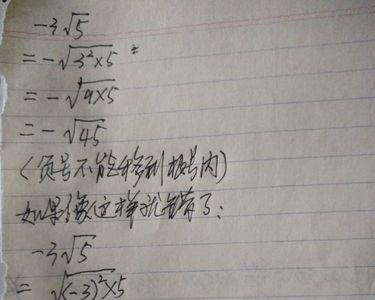 -3√5
= -√3²×5
= -√9×5
= -√45
(负号不能移到根号内)
如果像这样就错了:
-3√5
= √(-3)²×5